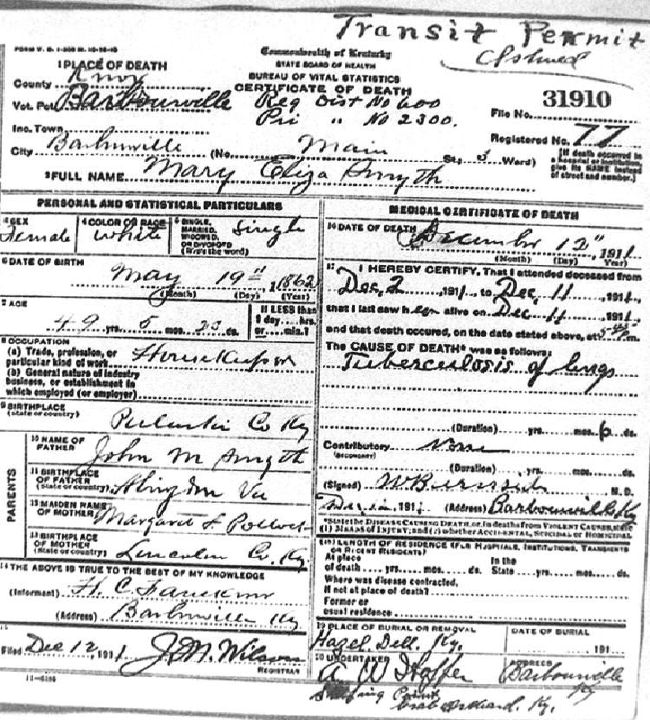 Transit Permit
FORM V. S. 1
Commonwealth of Kentucky
STATE BOARD OF HEALTH
BUREAU OF VITAL STATISTICS
CERTIFICATE OF DEATH
1 PLACE OF DEATH
County Knox
Vot. Pct. Barbourville
Reg Dist No 600
Pri " No 2300.
File No. 31910
Inc. Town
Registered No. 77
City Barbourville (No. Main St.; 3 Ward)
[If death occurred in a hospital or institution, give its NAME instead of street and number.]
2 FULL NAME Mary Eliza Smyth
PERSONAL AND STATISTICAL PARTICULARS
3 SEX Female
4 COLOR OR RACE White
5 SINGLE, MARRIED, WIDOWED, OR DIVORCED (Write the word) Single
6 DATE OF BIRTH May 19", 1862
(Month) (Day) (Year)
7 AGE 49 yrs. mos. 23 ds.
If LESS than 1 day, hrs. or min.?
8 OCCUPATION
(a) Trade, profession, or particular kind of work
(b) General nature of industry business, or establishment in which employed (or employer)
9 BIRTHPLACE (State or country) Pulaski Co Ky
PARENTS
10 NAME OF FATHER John M Smyth
11 BIRTHPLACE OF FATHER (State or country) Abingdon Va
12 MAIDEN NAME OF MOTHER Margaret
13 BIRTHPLACE OF MOTHER (State or country) Lincoln Co. Ky
14 THE ABOVE IS TRUE TO THE BEST OF MY KNOWLEDGE
(Informant) H. C.
(Address) Barbourville Ky
15
Filed Dec 12, 1911 J. M. Wilson
REGISTRAR
MEDICAL CERTIFICATE OF DEATH
16 DATE OF DEATH December 12", 1911
(Month) (Day) (Year)
17 I HEREBY CERTIFY, That I attended deceased from
Dec, 2 1911, to Dec, 11, 1911,
that I last saw h er alive on Dec 11, 1911,
and that death occured, on the date stated above, at m.
The CAUSE OF DEATH* was as follows:
Tuberculosis of lungs
(Duration) yrs. mos. 6 ds.
Contributory None
(SECONDARY)
(Duration) yrs. mos. ds.
(Signed) M. D.
191 (Address) Barbourville Ky
*State the DISEASE CAUSING DEATH, or, in deaths from VIOLENT CAUSES, state (1) MEANS OF INJURY; and (2) whether ACCIDENTAL, SUICIDAL or HOMICIDAL
18 LENGTH OF RESIDENCE (FOR HOSPITALS, INSTITUTIONS, TRANSIENTS OR RECENT RESIDENTS)
At place of death yrs. mos. ds. In the State yrs. mos. ds.
Where was disease contracted, if not at place of death?
Former or usual residence
19 PLACE OF BURIAL OR REMOVAL Hazel Dell, Ky.
DATE OF BURIAL 191
20 UNDERTAKER A W Hopper
ADDRESS Barbourville Ky
Shipping Point
Crab Orchard, Ky.